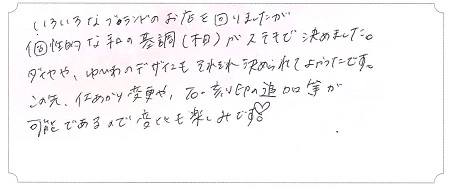 いろいろなブランドのお店を回りましたが
個性的な和の基調(木目)がステキで決めました。
ダイヤや、ゆびわのデザインもそれぞれ決められてよかったです。
この先、仕上がり変更や、刻印の追加等が
可能であるので変化も楽しみです♡